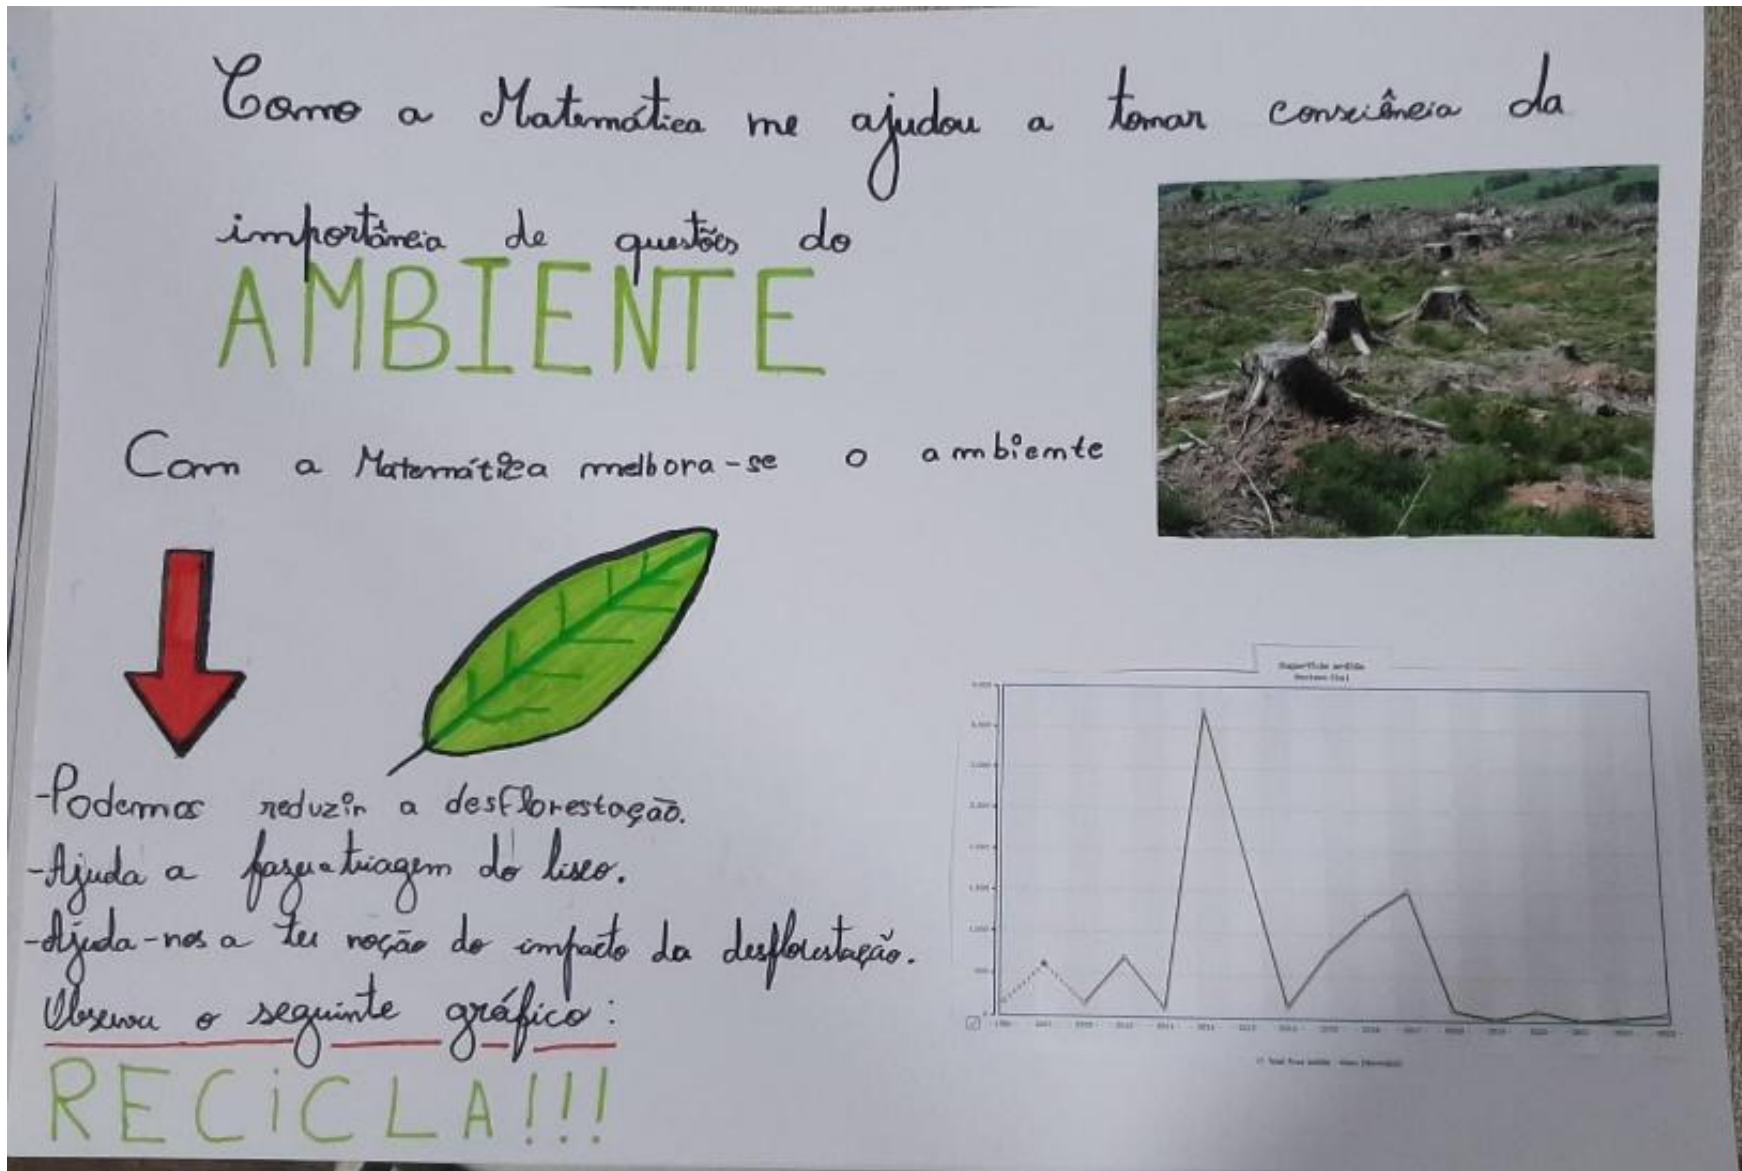 Como a Matemática me ajudou a tomar consciência da
importância de questões do
AMBIENTE
Com a Matemática melhora-se o ambiente
-Podemos reduzir a desflorestação.
-Ajuda a fazer a triagem do lixo.
-Ajuda-nos a ter noção do impacto da desflorestação.
Observa o seguinte gráfico:
RECiCLA!!!
Superfície ardida